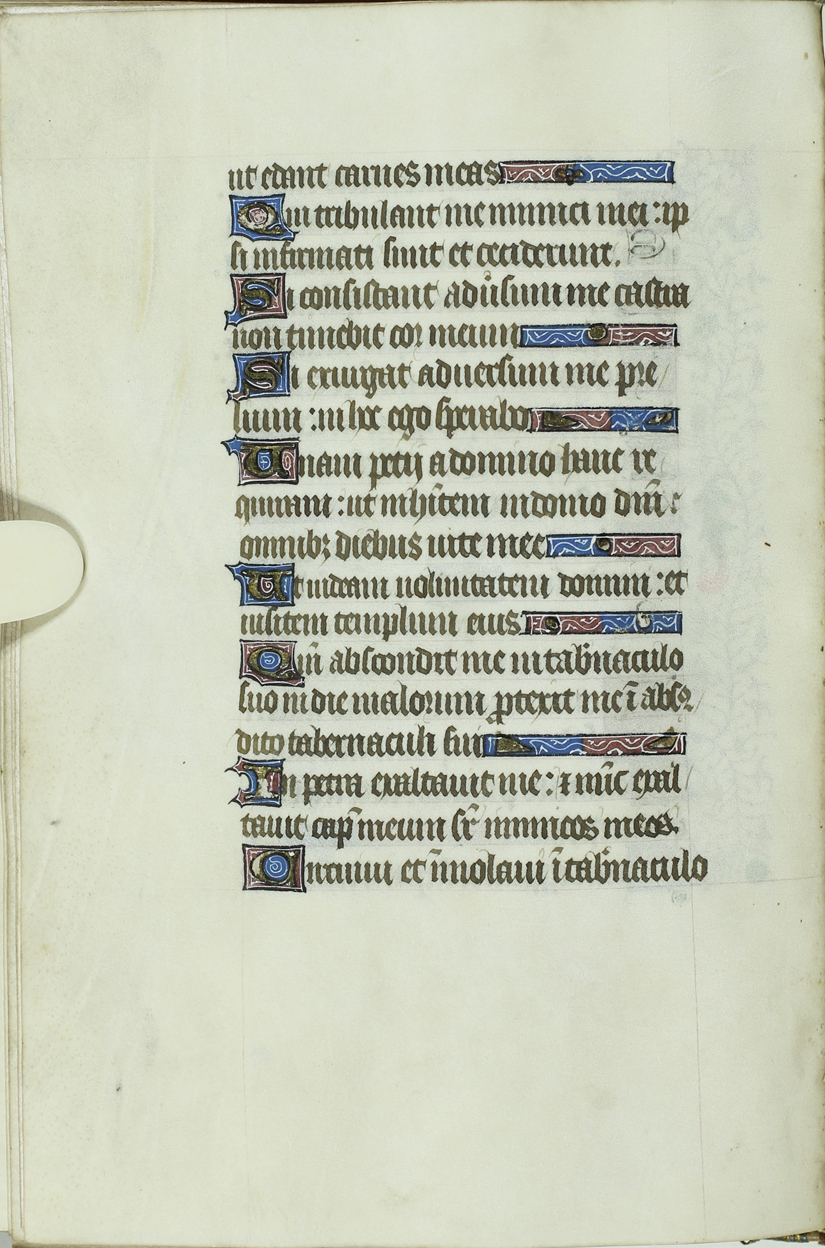 ut edant carnes meas
Qui tribulant me inimici mei : ip
si infirmati sunt et ceciderunt.
Si consistant adũsum me castra
non timebit cor meum
Si exurgat aduersum me pre
lium : in hoc ego sperabo
Unam petij a domino hanc re
quiram : ut inhĩtem in domo dñi :
omnibꝫ diebus uite mee
Ut uideam uoluntatem domini : et
uisitem templum eius
Qm̃ abscondit me in tab̃naculo
suo in die malorum ꝓtexit me ĩ absꝯ
dito tabernaculi sui
In petra exaltauit me : ⁊ nũc exal
tauit cap̃ meum sr̃ inimicos meos.
Circuiui et ĩmolaui ĩ tab̃naculo